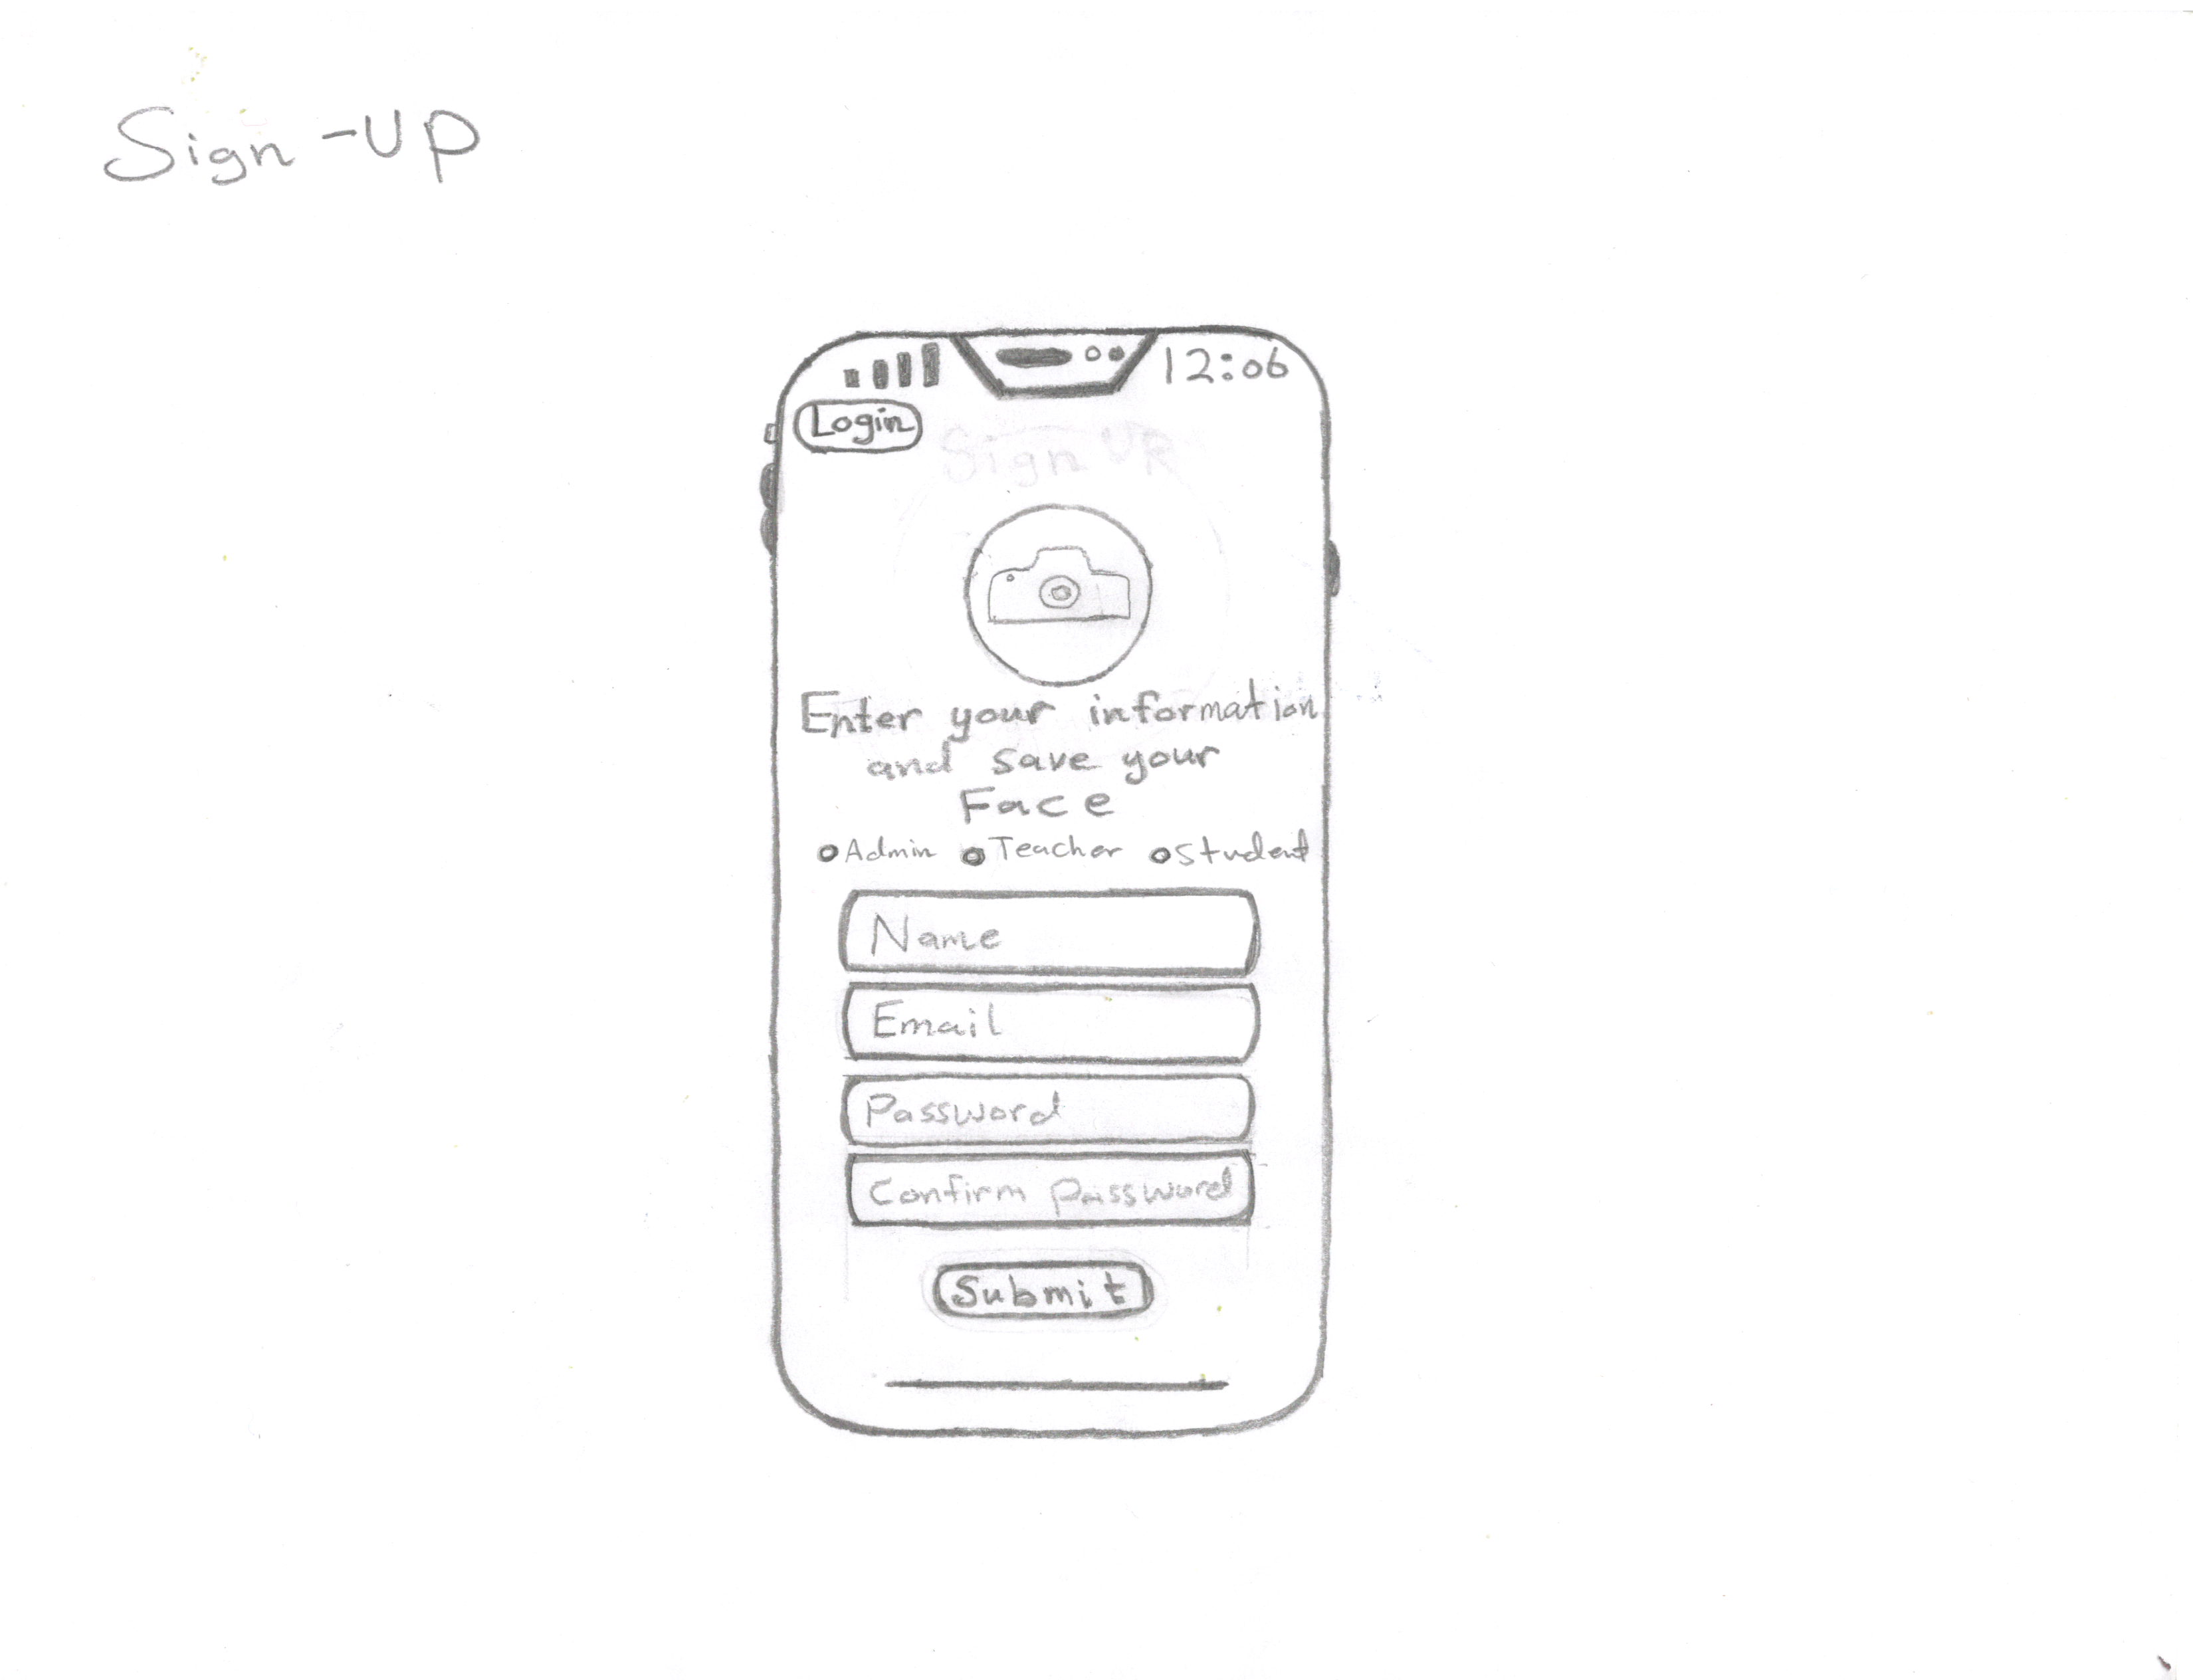 Sign-up
12:06
Login
Sign up
Enter your information
and save your
Face
Admin Teacher Student
Name
Email
Password
Confirm password
Submit